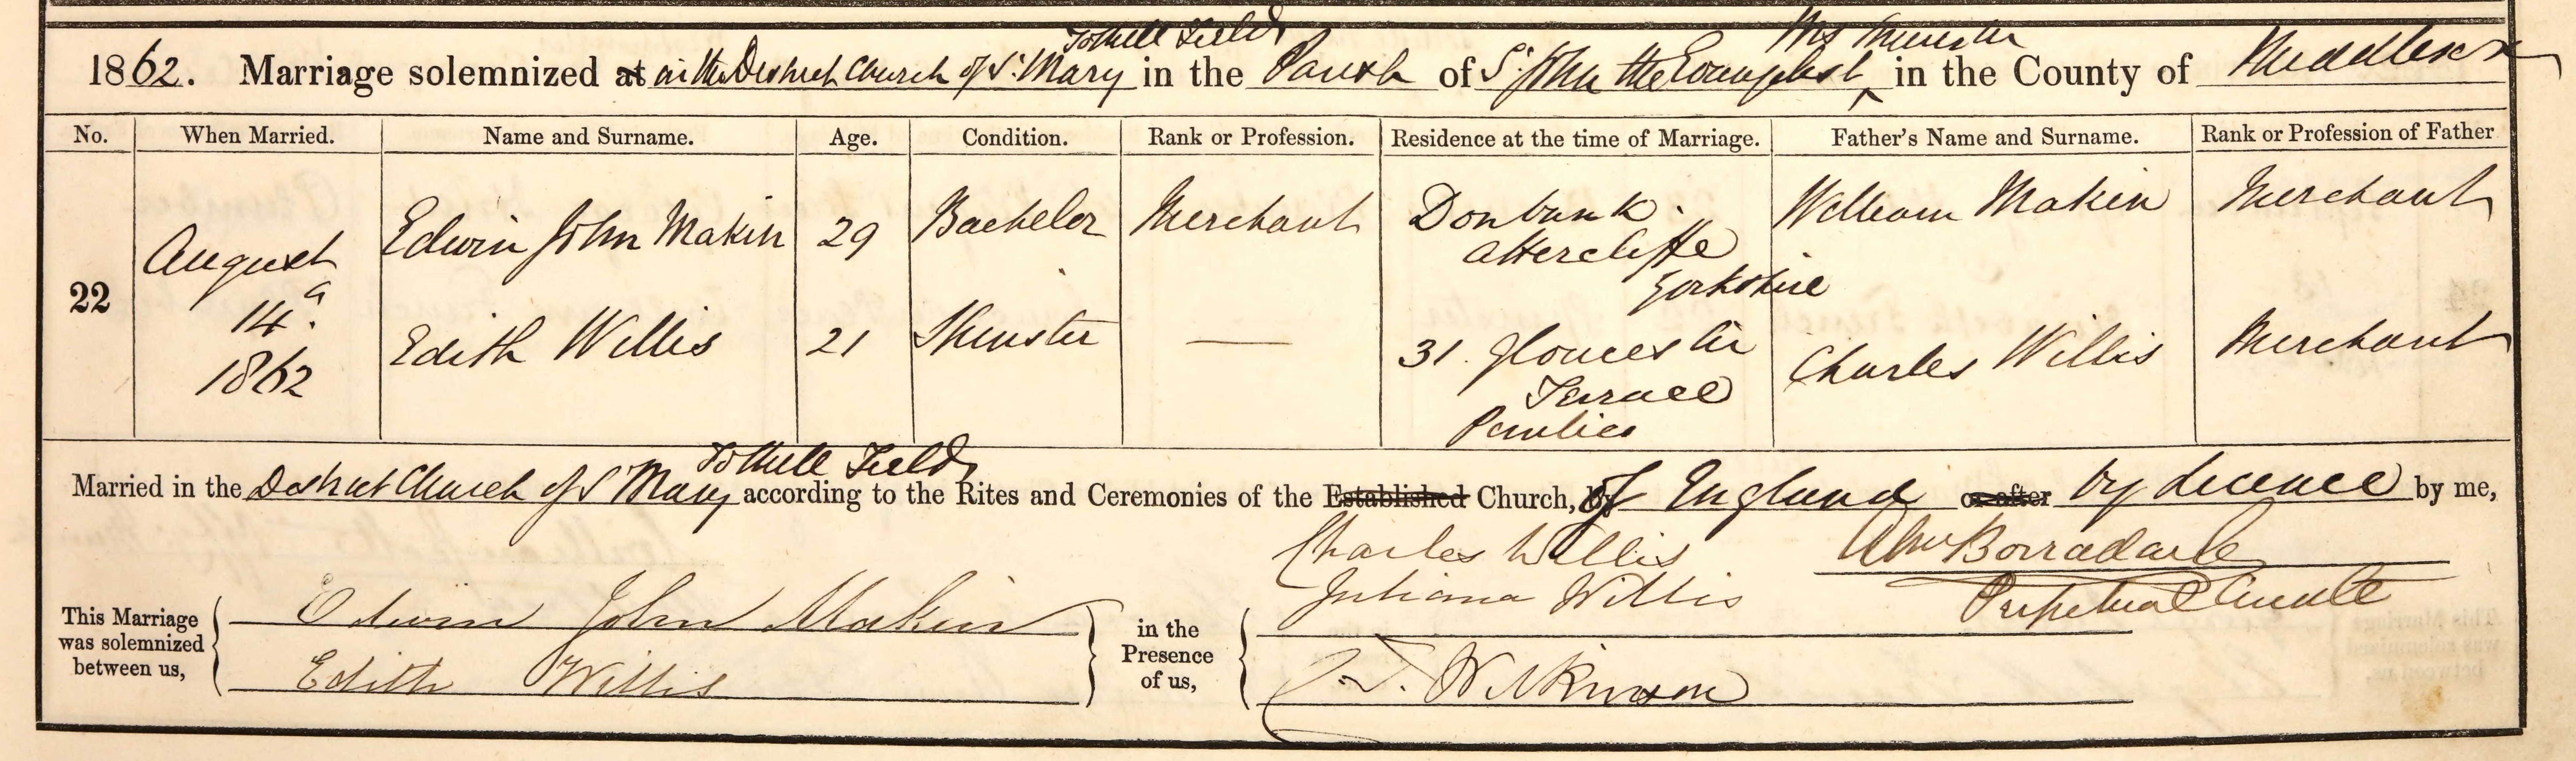 Tothill Fields Westminster
1862. Marriage solemnized at in the District Church of St. Mary in the Parish of St. John the Evangelist in the County of Middlesex
No. When Married. Name and Surname. Age. Condition. Rank or Profession. Residence at the time of Marriage. Father's Name and Surname. Rank or Profession of Father
22 August 14 1862
Edwin John Makin 29 Bachelor Merchant Donbank Attercliffe Yorkshire William Makin Merchant
Edith Willis 21 Spinster — 31. Gloucester Terrace Pimlico Charles Willis Merchant
Tothill Fields
Married in the District Church of St Mary according to the Rites and Ceremonies of the Established Church, of England or after by Licence by me,
Charles Willis A Borradaile
Juliana Willis Perpetual Curate
This Marriage was solemnized between us, Edwin John Makin in the Presence of us,
Edith Willis J. T. Wilkinson